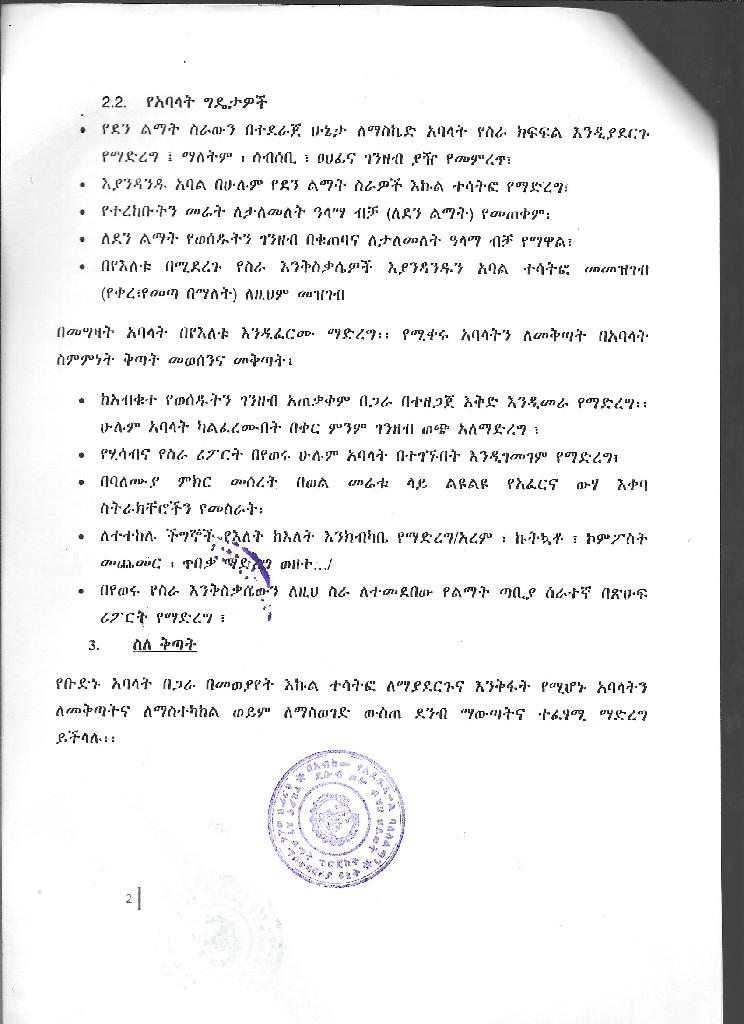 2.2. የአባላት ግዴታዎች
• የደን ልማት ስራውን በተደራጀ ሁኔታ ለማስኬድ አባላት የስራ ክፍፍል እንዲያደርጉ
የማድረግ ፤ ማለትም ፣ ሰብሰቢ ፣ ፀሀፊና ገንዘብ ያዥ የመምረጥ፣
• እያንዳንዱ አባል በሁሉም የደን ልማት ስራዎች እኩል ተሳትፎ የማድረግ፣
• የተረከቡትን መሬት ለታለመለት ዓላማ ብቻ (ለደን ልማት) የመጠቀም፣
• ለደን ልማት የወሰዱትን ገንዘብ በቁጠባና ለታለመለት ዓላማ ብቻ የማዋል፣
• በየእለቱ በሚደረጉ የስራ እንቅስቃሴዎች እያንዳንዱን አባል ተሳትፎ መመዝገብ
(የቀረ፣የመጣ በማለት) ለዚህም መዝገብ
በመግዛት አባላት በየእለቱ እንዲፈርሙ ማድረግ፡፡ የሚቀሩ አባላትን ለመቅጣት በአባላት
ስምምነት ቅጣት መወሰንና መቅጣት፣
• ከአብቁተ የወሰዱትን ገንዘብ አጠቃቀም በጋራ በተዘጋጀ እቅድ እንዲመራ የማድረግ፡፡
ሁሉም አባላት ካልፈረሙበት በቀር ምንም ገንዘብ ወጭ አለማድረግ ፣
• የሂሳብና የስራ ሪፖርት በየወሩ ሁሉም አባላት በተገኙበት እንዲገመገም የማድረግ፣
• በባለሙያ ምክር መሰረት በወል መሬቱ ላይ ልዩልዩ የአፈርና ውሃ እቀባ
ስትራክቸሮችን የመስራት፣
• ለተተከሉ ችግኞች የእለት ከእለት እንክብካቤ የማድረግ/አረም ፣ ኩትኳቶ ፣ ኮምፖስት
መጨመር ፣ ጥበቃ ማድረግ ወዘተ.../
• በየወሩ የስራ እንቅስቃሴውን ለዚህ ስራ ለተመደበው የልማት ጣቢያ ሰራተኛ በጽሁፍ
ሪፖርት የማድረግ ፣
3. ስለ ቅጣት
የቡድኑ አባላት በጋራ በመወያየት እኩል ተሳትፎ ለማያደርጉና እንቅፋት የሚሆኑ አባላትን
ለመቅጣትና ለማስተካከል ወይም ለማስወገድ ውስጠ ደንብ ማውጣትና ተፈፃሚ ማድረግ
ይችላሉ፡፡
2